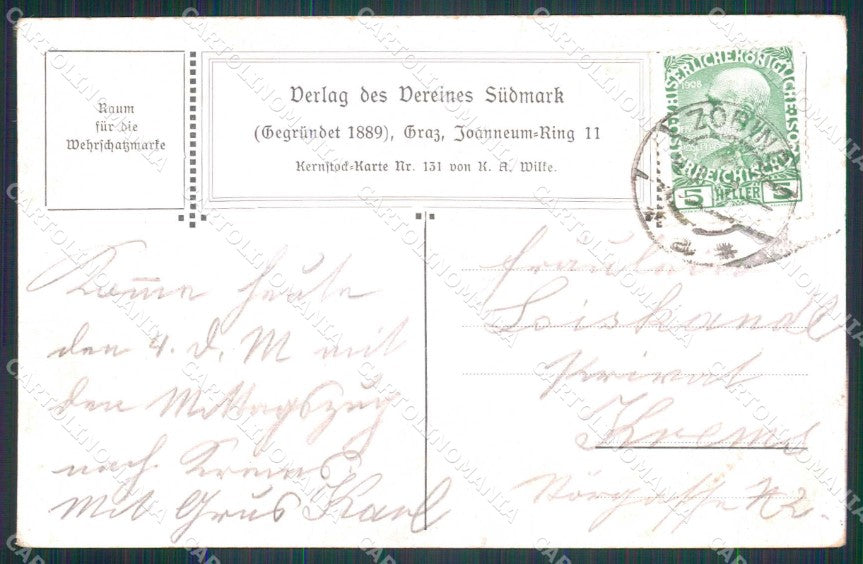 Raum
für die
Wehrschatzmarke
Verlag des Vereines Südmark
(Gegründet 1889), Graz, Joanneum=Ring 11
Kernstock=Karte Nr. 131 von K. A. Wilke.
1908
KAISERLICHEKÖNIGLICHE
ÖSTERREICHISCHE
5 HELLER 5
ZÖBING
Kom̄e heute
den 4. d. M mit
den Mittagszug
nach Krems
Mit Grus Karl
Fräulein
Loiskandl
Privat
Krems
CARTOLINOMANIA